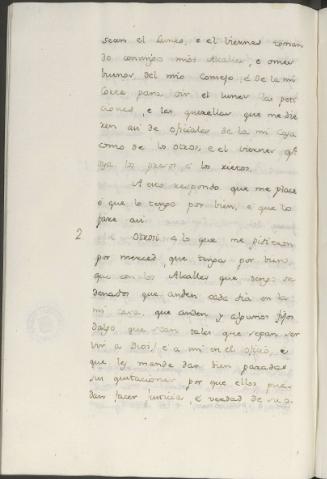 sean el Lunes, e el viernes toman
do conmigo mios Alcalles, e omes
buenos del mio Consejo, e de la mi
Corte para oir el lunes las peti
ciones, e las querellas que me die
ren asi de oficiales de la mi Casa
como de los otros, e el viernes q
oya los presos e los rieptos.
A esto respondo que me place
e que lo tengo por bien, e que lo
fare asi.
2 Otrosi a lo que me pidieron
por merced, que tenga por bien,
que con los Alcalles que tengo or
denados que anden cada dia en la
mi casa, que anden y algunos fijos
dalgo que sean tales que sepan ser
vir a Dios, e a mi en el oficio, e
que les mande dar bien paradas
sus quitaciones por que ellos pue
dan facer justicia, e verdad de su